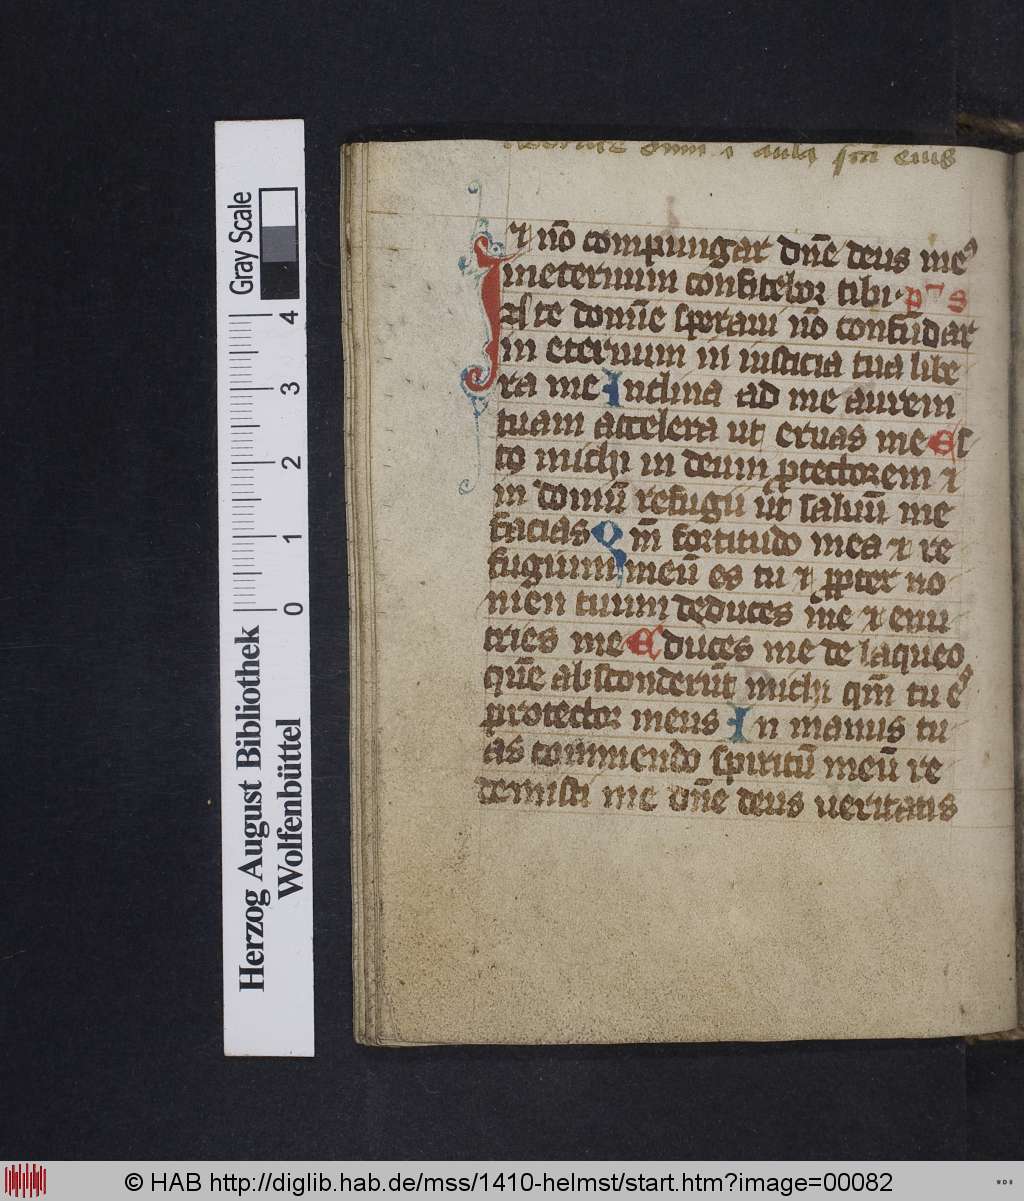 dnm i aula sca eius
⁊ nō compungar dn̄e deus meꝰ
ineternum confitebor tibi· pˢ
IN te domīe speraui nō confūdar
in eternum in iusticia tua libe
ra me Inclina ad me aurem
tuam accelera ut eruas me Es
to michi in deum ꝓtectorem ⁊
in domū refugii ut saluū me
facias Qm̄ fortitudo mea ⁊ re
fugium meū es tu ⁊ ꝓpter no
men tuum deduces me ⁊ enu
tries me Educes me de laqueo
quē absconderūt michi qm̄ tu eˢ
protector meus In manus tu
as commendo spiritū meū re
demisti me dn̄e deus ueritatis
Gray Scale
4
3
2
1
0
Herzog August Bibliothek
Wolfenbüttel
© HAB http://diglib.hab.de/mss/1410-helmst/start.htm?image=00082